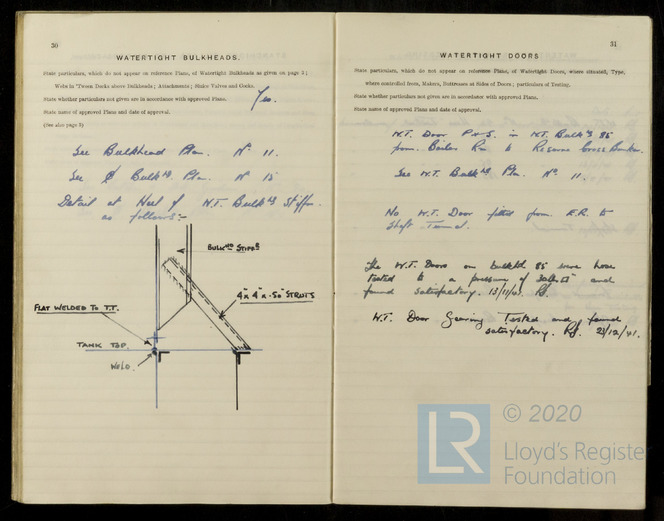 30
WATERTIGHT BULKHEADS.
State particulars, which do not appear on reference Plans, of Watertight Bulkheads as given on page 3;
Webs in 'Tween Decks above Bulkheads; Attachments; Sluice Valves and Cocks.
State whether particulars not given are in accordance with approved Plans. Yes.
State name of approved Plans and date of approval.
(See also page 3)
See Bulkhead Plan. No 11.
See Bulkhd Plan. No 15
Detail at Heel of W.T. Bulkhd Stiffr.
as follows:-
BULKHD STIFFR
4" x 4" x .50" STRUTS
FLAT WELDED TO T.T.
TANK TOP.
WELD.
31
WATERTIGHT DOORS
State particulars, which do not appear on reference Plans, of Watertight Doors, where situated, Type,
where controlled from, Makers, Buttresses at Sides of Doors; particulars of Testing.
State whether particulars not given are in accordance with approved Plans.
State names of approved Plans and date of approval.
W.T. Door P & S. in W.T. Bulkhd 85
from Boiler Rm to Reserve Cross Bunker.
See W.T. Bulkhd Pln. No. 11.
No W.T. Door fitted from E.R. to
Shaft Tunnel.
The W.T. Doors on bulkhd 85 were hose
tested to a pressure of and
found satisfactory. 13/11/41
W.T. Door Gearing Tested and found
satisfactory. 23/12/41.
LR
© 2020
Lloyd's Register
Foundation